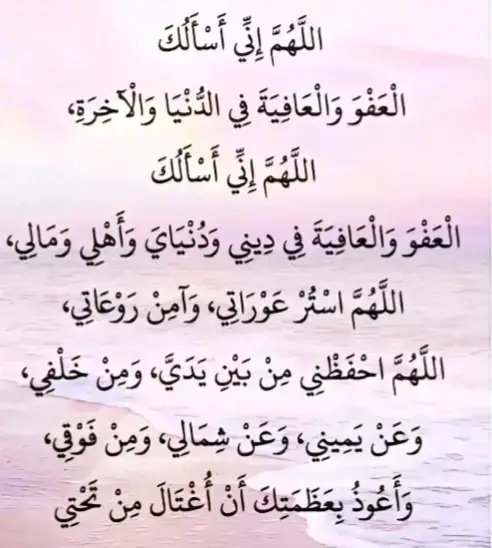 اللَّهُمَّ إِنِّي أَسْأَلُكَ
الْعَفْوَ وَالْعَافِيَةَ فِي الدُّنْيَا وَالْآخِرَةِ،
اللَّهُمَّ إِنِّي أَسْأَلُكَ
الْعَفْوَ وَالْعَافِيَةَ فِي دِينِي وَدُنْيَايَ وَأَهْلِي وَمَالِي،
اللَّهُمَّ اسْتُرْ عَوْرَاتِي، وَآمِنْ رَوْعَاتِي،
اللَّهُمَّ احْفَظْنِي مِنْ بَيْنِ يَدَيَّ، وَمِنْ خَلْفِي،
وَعَنْ يَمِينِي، وَعَنْ شِمَالِي، وَمِنْ فَوْقِي،
وَأَعُوذُ بِعَظَمَتِكَ أَنْ أُغْتَالَ مِنْ تَحْتِي